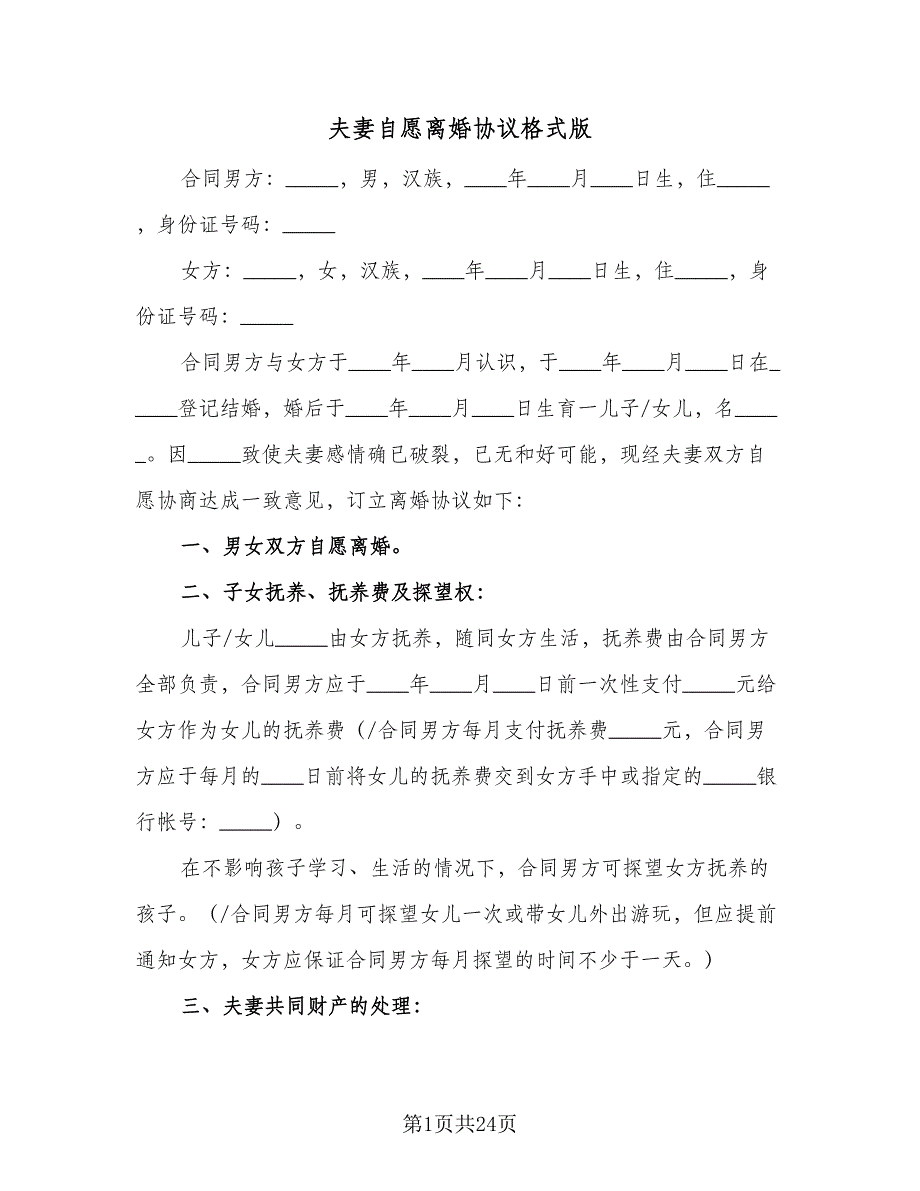 夫妻自愿离婚协议格式版
合同男方：_____，男，汉族，____年____月____日生，住_____
，身份证号码：_____
女方：_____，女，汉族，____年____月____日生，住_____，身
份证号码：_____
合同男方与女方于____年____月认识，于____年____月____日在_
____登记结婚，婚后于____年____月____日生育一儿子/女儿，名____
_。因_____致使夫妻感情确已破裂，已无和好可能，现经夫妻双方自
愿协商达成一致意见，订立离婚协议如下：
一、男女双方自愿离婚。
二、子女抚养、抚养费及探望权：
儿子/女儿_____由女方抚养，随同女方生活，抚养费由合同男方
全部负责，合同男方应于____年____月____日前一次性支付_____元给
女方作为女儿的抚养费（/合同男方每月支付抚养费_____元，合同男
方应于每月的____日前将女儿的抚养费交到女方手中或指定的_____银
行帐号：_____）。
在不影响孩子学习、生活的情况下，合同男方可探望女方抚养的
孩子。（/合同男方每月可探望女儿一次或带女儿外出游玩，但应提前
通知女方，女方应保证合同男方每月探望的时间不少于一天。）
三、夫妻共同财产的处理：
第1页共24页